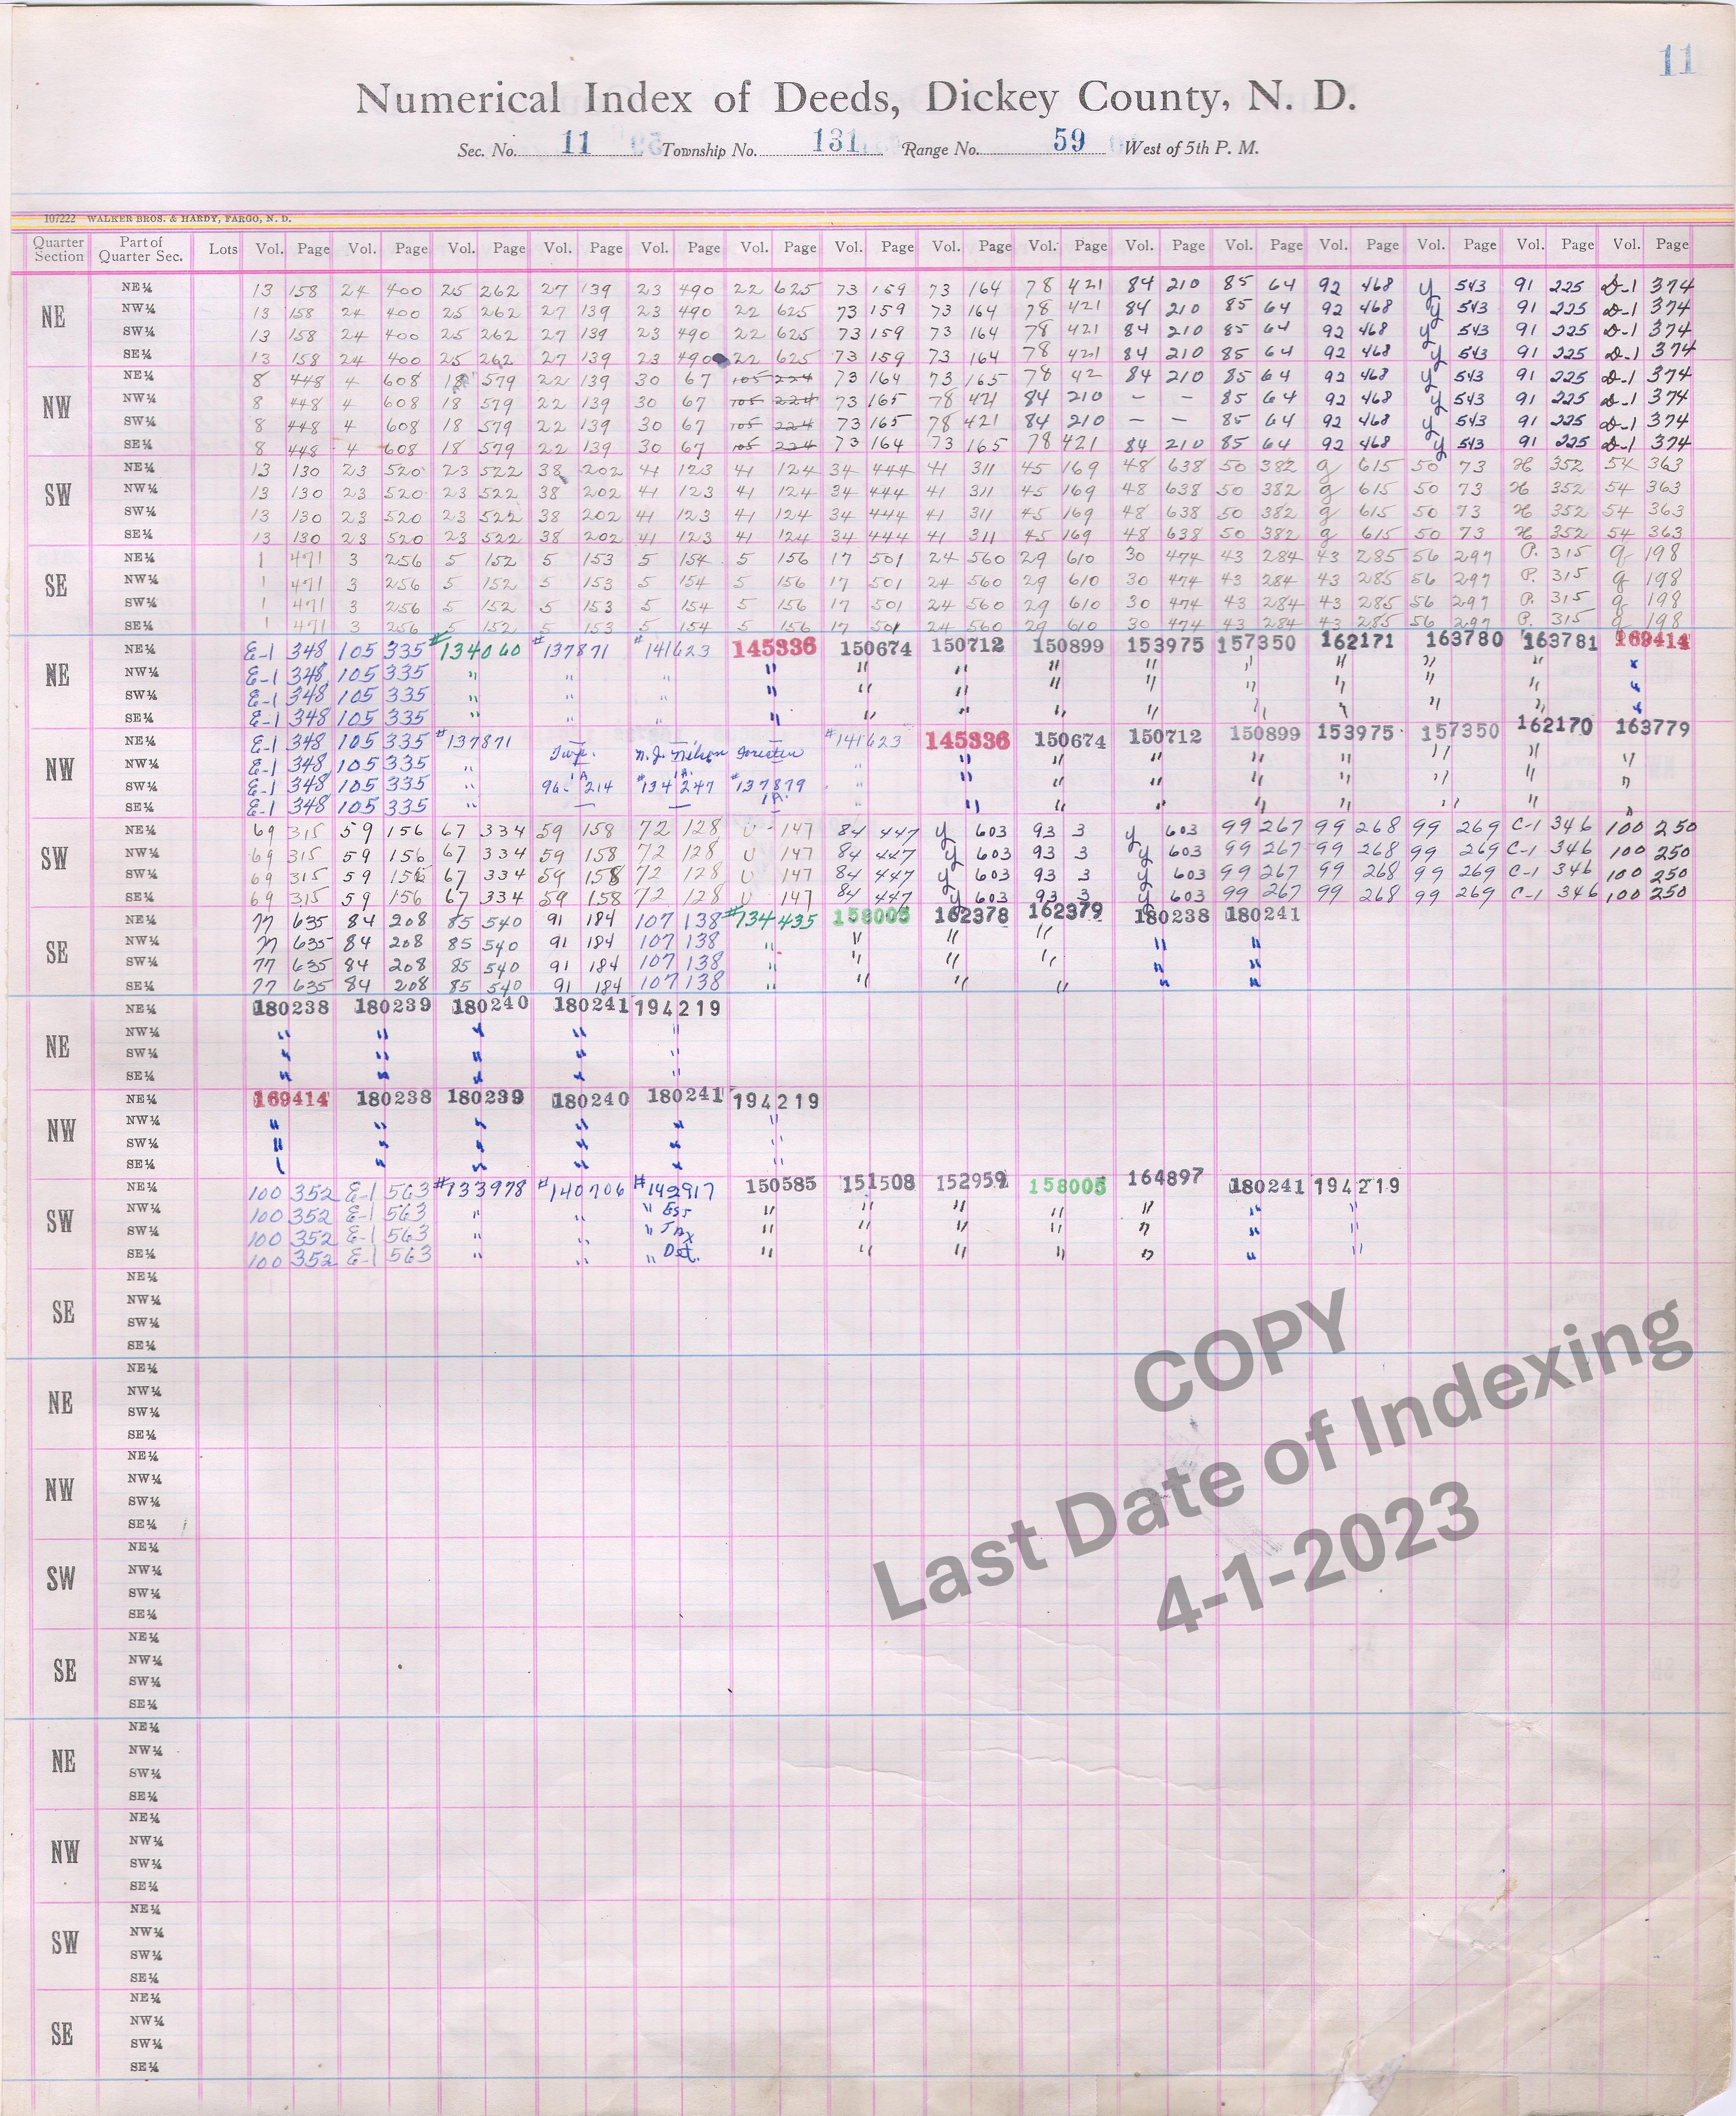 11
Numerical Index of Deeds, Dickey County, N. D.
Sec. No. 11 Township No. 131 Range No. 59 West of 5th P. M.
107222 WALKER BROS. & HARDY, FARGO, N. D.
Quarter Section Part of Quarter Sec. Lots Vol. Page Vol. Page Vol. Page Vol. Page Vol. Page Vol. Page Vol. Page Vol. Page Vol. Page Vol. Page Vol. Page Vol. Page Vol. Page Vol. Page Vol. Page
NE
NE¼ 13 158 24 400 25 262 27 139 23 490 22 625 73 159 73 164 78 421 84 210 85 64 92 468 y 543 91 225 D-1 374
NW¼ 13 158 24 400 25 262 27 139 23 490 22 625 73 159 73 164 78 421 84 210 85 64 92 468 y 543 91 225 D-1 374
SW¼ 13 158 24 400 25 262 27 139 23 490 22 625 73 159 73 164 78 421 84 210 85 64 92 468 y 543 91 225 D-1 374
SE¼ 13 158 24 400 25 262 27 139 23 490 22 625 73 159 73 164 78 421 84 210 85 64 92 468 y 543 91 225 D-1 374
NW
NE¼ 8 448 4 608 18 579 22 139 30 67 105 224 73 164 73 165 78 42 84 210 85 64 92 468 y 543 91 225 D-1 374
NW¼ 8 448 4 608 18 579 22 139 30 67 105 224 73 165 78 421 84 210 – – 85 64 92 468 y 543 91 225 D-1 374
SW¼ 8 448 4 608 18 579 22 139 30 67 105 224 73 165 78 421 84 210 – – 85 64 92 468 y 543 91 225 D-1 374
SE¼ 8 448 4 608 18 579 22 139 30 67 105 224 73 164 73 165 78 421 84 210 85 64 92 468 y 543 91 225 D-1 374
SW
NE¼ 13 130 23 520 23 522 38 202 41 123 41 124 34 444 41 311 45 169 48 638 50 382 g 615 50 73 H 352 54 363
NW¼ 13 130 23 520 23 522 38 202 41 123 41 124 34 444 41 311 45 169 48 638 50 382 g 615 50 73 H 352 54 363
SW¼ 13 130 23 520 23 522 38 202 41 123 41 124 34 444 41 311 45 169 48 638 50 382 g 615 50 73 H 352 54 363
SE¼ 13 130 23 520 23 522 38 202 41 123 41 124 34 444 41 311 45 169 48 638 50 382 g 615 50 73 H 352 54 363
SE
NE¼ 1 471 3 256 5 152 5 153 5 154 5 156 17 501 24 560 29 610 30 474 43 284 43 285 56 297 P. 315 q 198
NW¼ 1 471 3 256 5 152 5 153 5 154 5 156 17 501 24 560 29 610 30 474 43 284 43 285 56 297 P. 315 q 198
SW¼ 1 471 3 256 5 152 5 153 5 154 5 156 17 501 24 560 29 610 30 474 43 284 43 285 56 297 P. 315 q 198
SE¼ 1 471 3 256 5 152 5 153 5 154 5 156 17 501 24 560 29 610 30 474 43 284 43 285 56 297 P. 315 q 198
NE
NE¼ E-1 348 105 335 #134060 #137871 #141623 145336 150674 150712 150899 153975 157350 162171 163780 163781 169414
NW¼ E-1 348 105 335 " " " " " " " " " " " " "
SW¼ E-1 348 105 335 " " " " " " " " " " " " "
SE¼ E-1 348 105 335 " " " " " " " " " " " " "
NW
NE¼ E-1 348 105 335 #137871 #141623 145336 150674 150712 150899 153975 157350 162170 163779
NW¼ E-1 348 105 335 " Twp. N.J. Nilson " " " " " " " " "
SW¼ E-1 348 105 335 " 96 1A 214 #134 1A. 247 #137879 " " " " " " " " "
SE¼ E-1 348 105 335 " — — 1A. " " " " " " " " "
SW
NE¼ 69 315 59 156 67 334 59 158 72 128 U 147 84 447 y 603 93 3 y 603 99 267 99 268 99 269 C-1 346 100 250
NW¼ 69 315 59 156 67 334 59 158 72 128 U 147 84 447 y 603 93 3 y 603 99 267 99 268 99 269 C-1 346 100 250
SW¼ 69 315 59 156 67 334 59 158 72 128 U 147 84 447 y 603 93 3 y 603 99 267 99 268 99 269 C-1 346 100 250
SE¼ 69 315 59 156 67 334 59 158 72 128 U 147 84 447 y 603 93 3 y 603 99 267 99 268 99 269 C-1 346 100 250
SE
NE¼ 77 635 84 208 85 540 91 184 107 138 #134435 158005 162378 162379 180238 180241
NW¼ 77 635 84 208 85 540 91 184 107 138 " " " " " "
SW¼ 77 635 84 208 85 540 91 184 107 138 " " " " " "
SE¼ 77 635 84 208 85 540 91 184 107 138 " " " " " "
NE
NE¼ 180238 180239 180240 180241 194219
NW¼ " " " " "
SW¼ " " " " "
SE¼ " " " " "
NW
NE¼ 169414 180238 180239 180240 180241 194219
NW¼ " " " " " "
SW¼ " " " " " "
SE¼ " " " " " "
SW
NE¼ 100 352 E-1 563 #133978 #140706 #142917 150585 151508 152959 158005 164897 180241 194219
NW¼ 100 352 E-1 563 " " " Est " " " " " " "
SW¼ 100 352 E-1 563 " " " Tax " " " " " " "
SE¼ 100 352 E-1 563 " " " Det. " " " " " " "
SE
NE¼
NW¼
SW¼
SE¼
NE
NE¼
NW¼
SW¼
SE¼
NW
NE¼
NW¼
SW¼
SE¼
SW
NE¼
NW¼
SW¼
SE¼
SE
NE¼
NW¼
SW¼
SE¼
NE
NE¼
NW¼
SW¼
SE¼
NW
NE¼
NW¼
SW¼
SE¼
SW
NE¼
NW¼
SW¼
SE¼
SE
NE¼
NW¼
SW¼
SE¼
COPY
Last Date of Indexing
4-1-2023